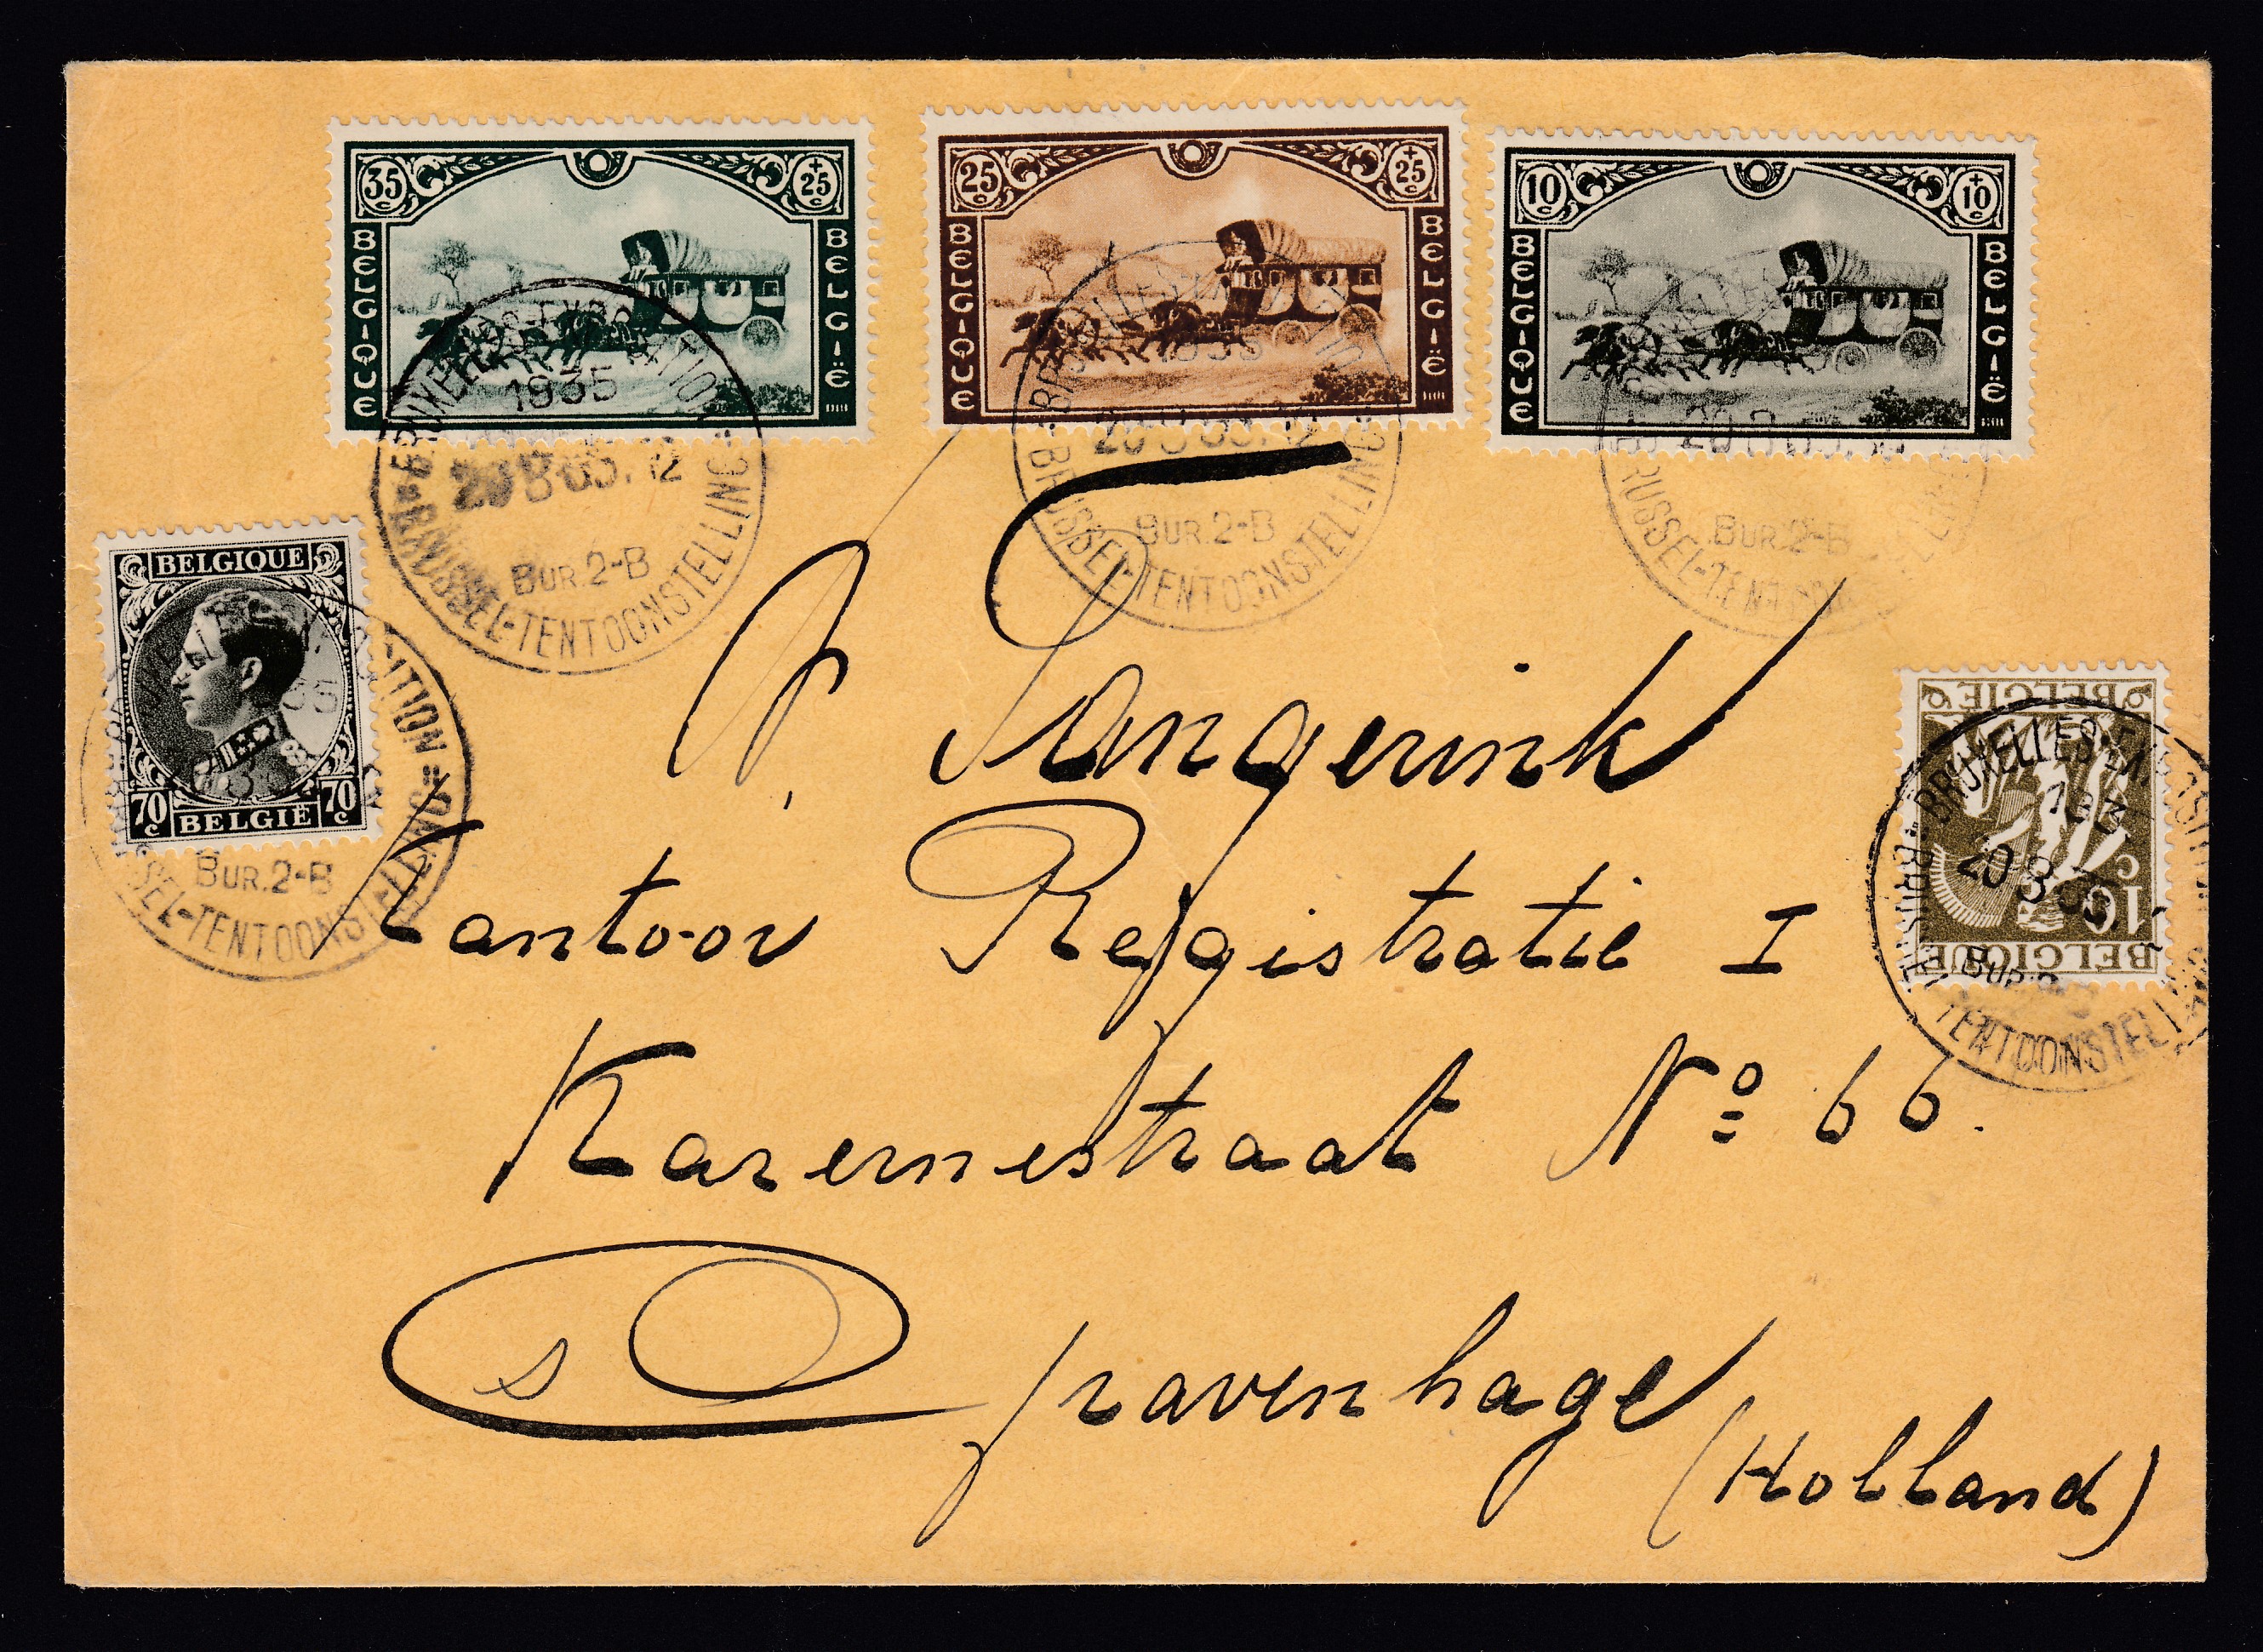 35 c + 25 c
BELGIQUE BELGIË
25 c + 25 c
BELGIQUE BELGIË
10 c + 10 c
BELGIQUE BELGIË
BRUXELLES-EXPOSITION
1935
20 8 35. 12
BUR. 2-B
BRUSSEL-TENTOONSTELLING
BRUXELLES-EXPOSITION
1935
20 8 35. 12
BUR. 2-B
BRUSSEL-TENTOONSTELLING
BUR. 2-B
BRUSSEL-TENTOONSTELLING
BELGIQUE
70 c BELGIË 70 c
BUR. 2-B
BRUSSEL-TENTOONSTELLING
BELGIË
10 c
BELGIQUE
BRUXELLES-EXPOSITION
20 8 35
BUR. 2-B
BRUSSEL-TENTOONSTELLING
Tangerink
Kantoor Registratie I
Kazernestraat Nº 66.
s Gravenhage
(Holland)